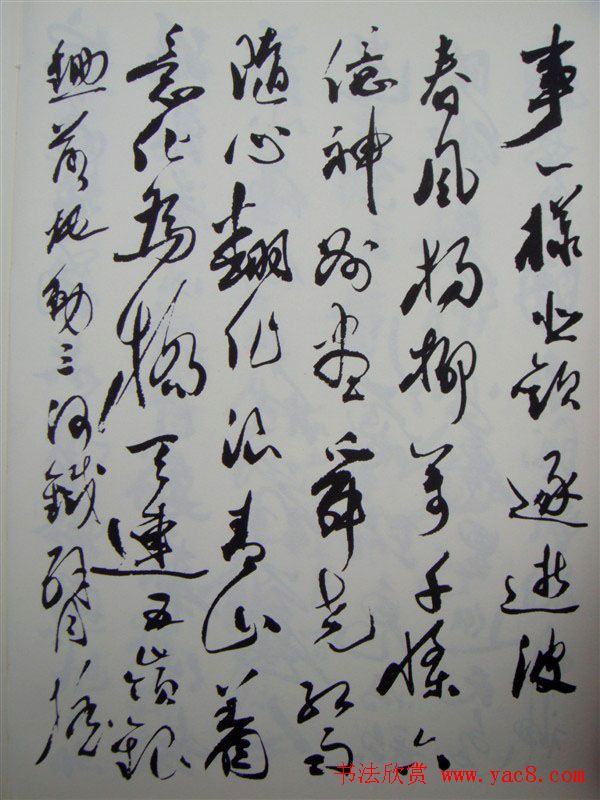 事一樣悲歡逐逝波
春風楊柳萬千條六
億神州盡舜堯紅雨
隨心翻作浪青山著
意化為橋天連五嶺銀
鋤落地動三河鐵臂搖
书法欣赏 www.yac8.com